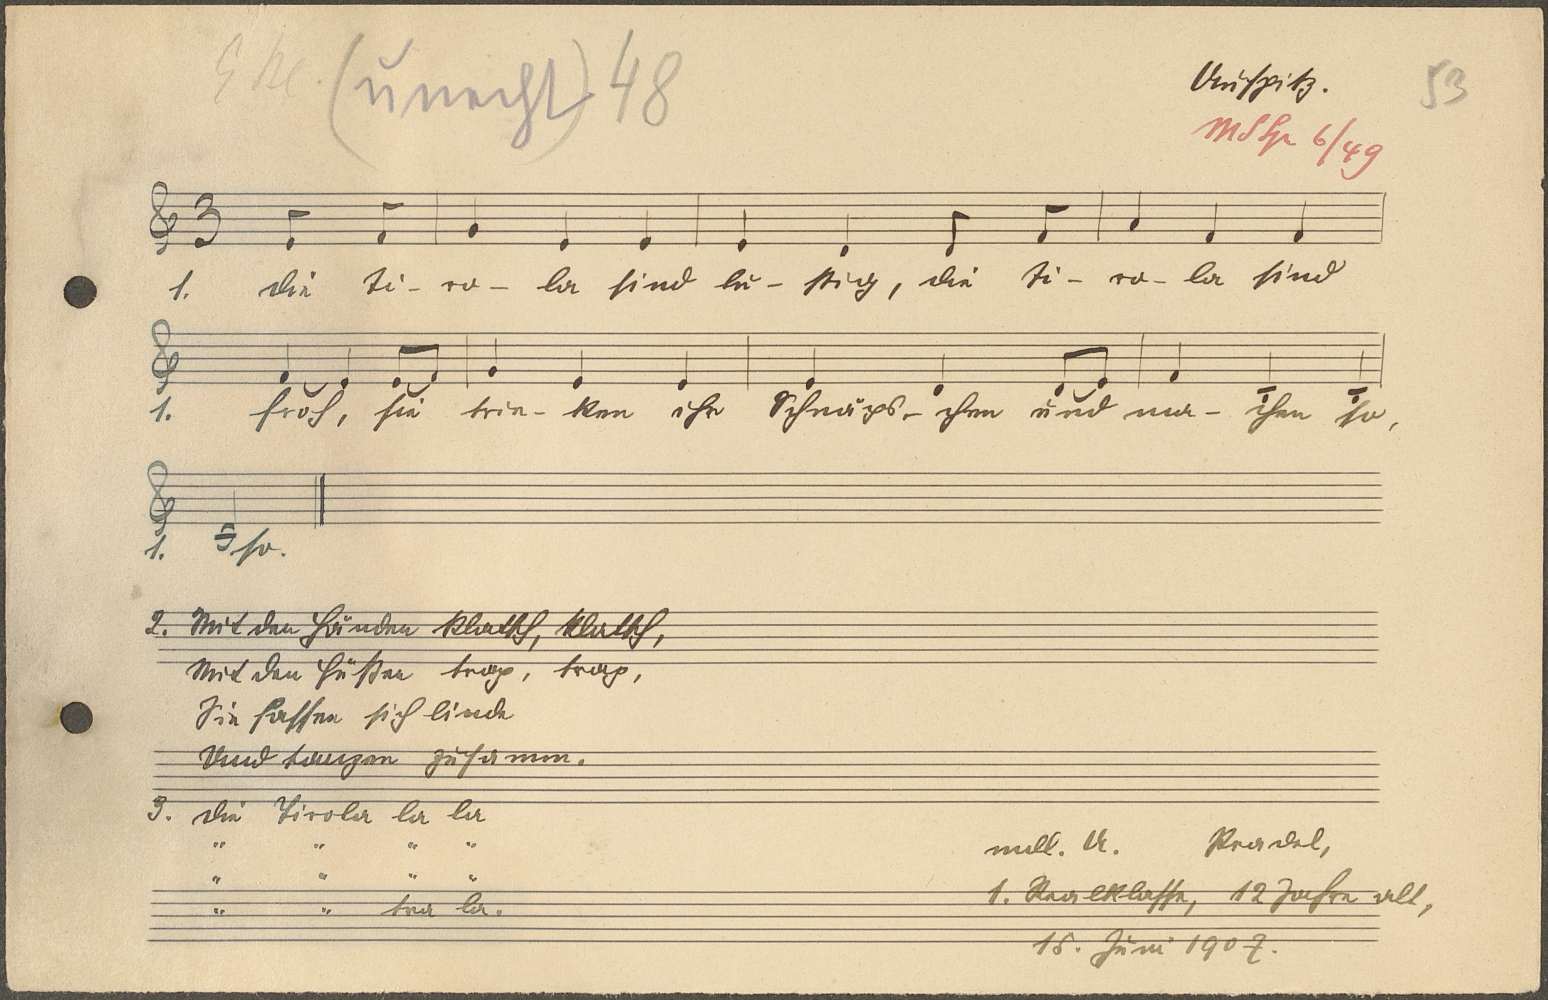 (unecht) 48
Auspitz.
53
6/49
3
1. die Ti- ro- la sind lu- stig, die Ti- ro- la sind
1. froh, sie trin- ken ihr Schnäps- chen und ma- chen so,
1. so.
2. Mit den Händen klatsch, klatsch,
Mit den Füßen trap, trap,
Sie fassen sich linde
Und tanzen zusamm.
3. die Tirola la la
" " " "
" " " "
" " tra la.
mitt. A. Pradel,
1. Realklasse, 12 Jahre alt,
15. Juni 1907.